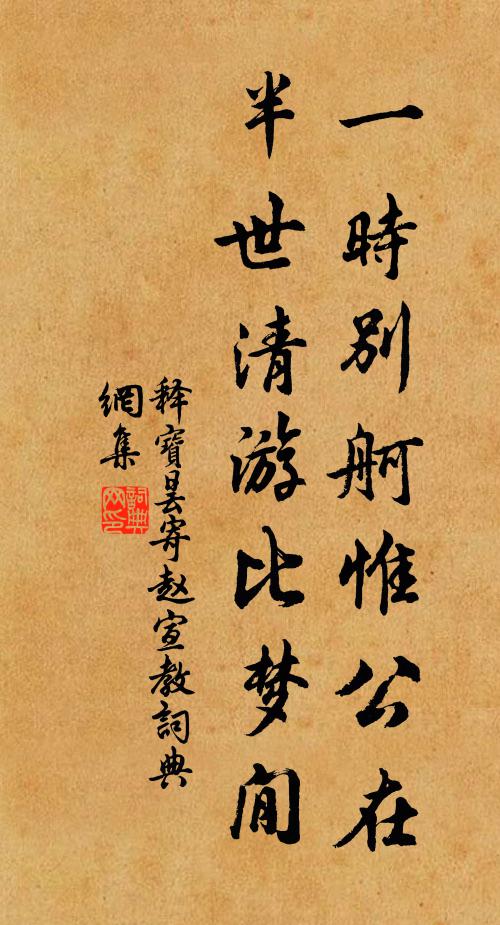 一時別舸惟公在
半世清游比梦间
释寶昙寄赵宣教詞典
網集
詞典
网印